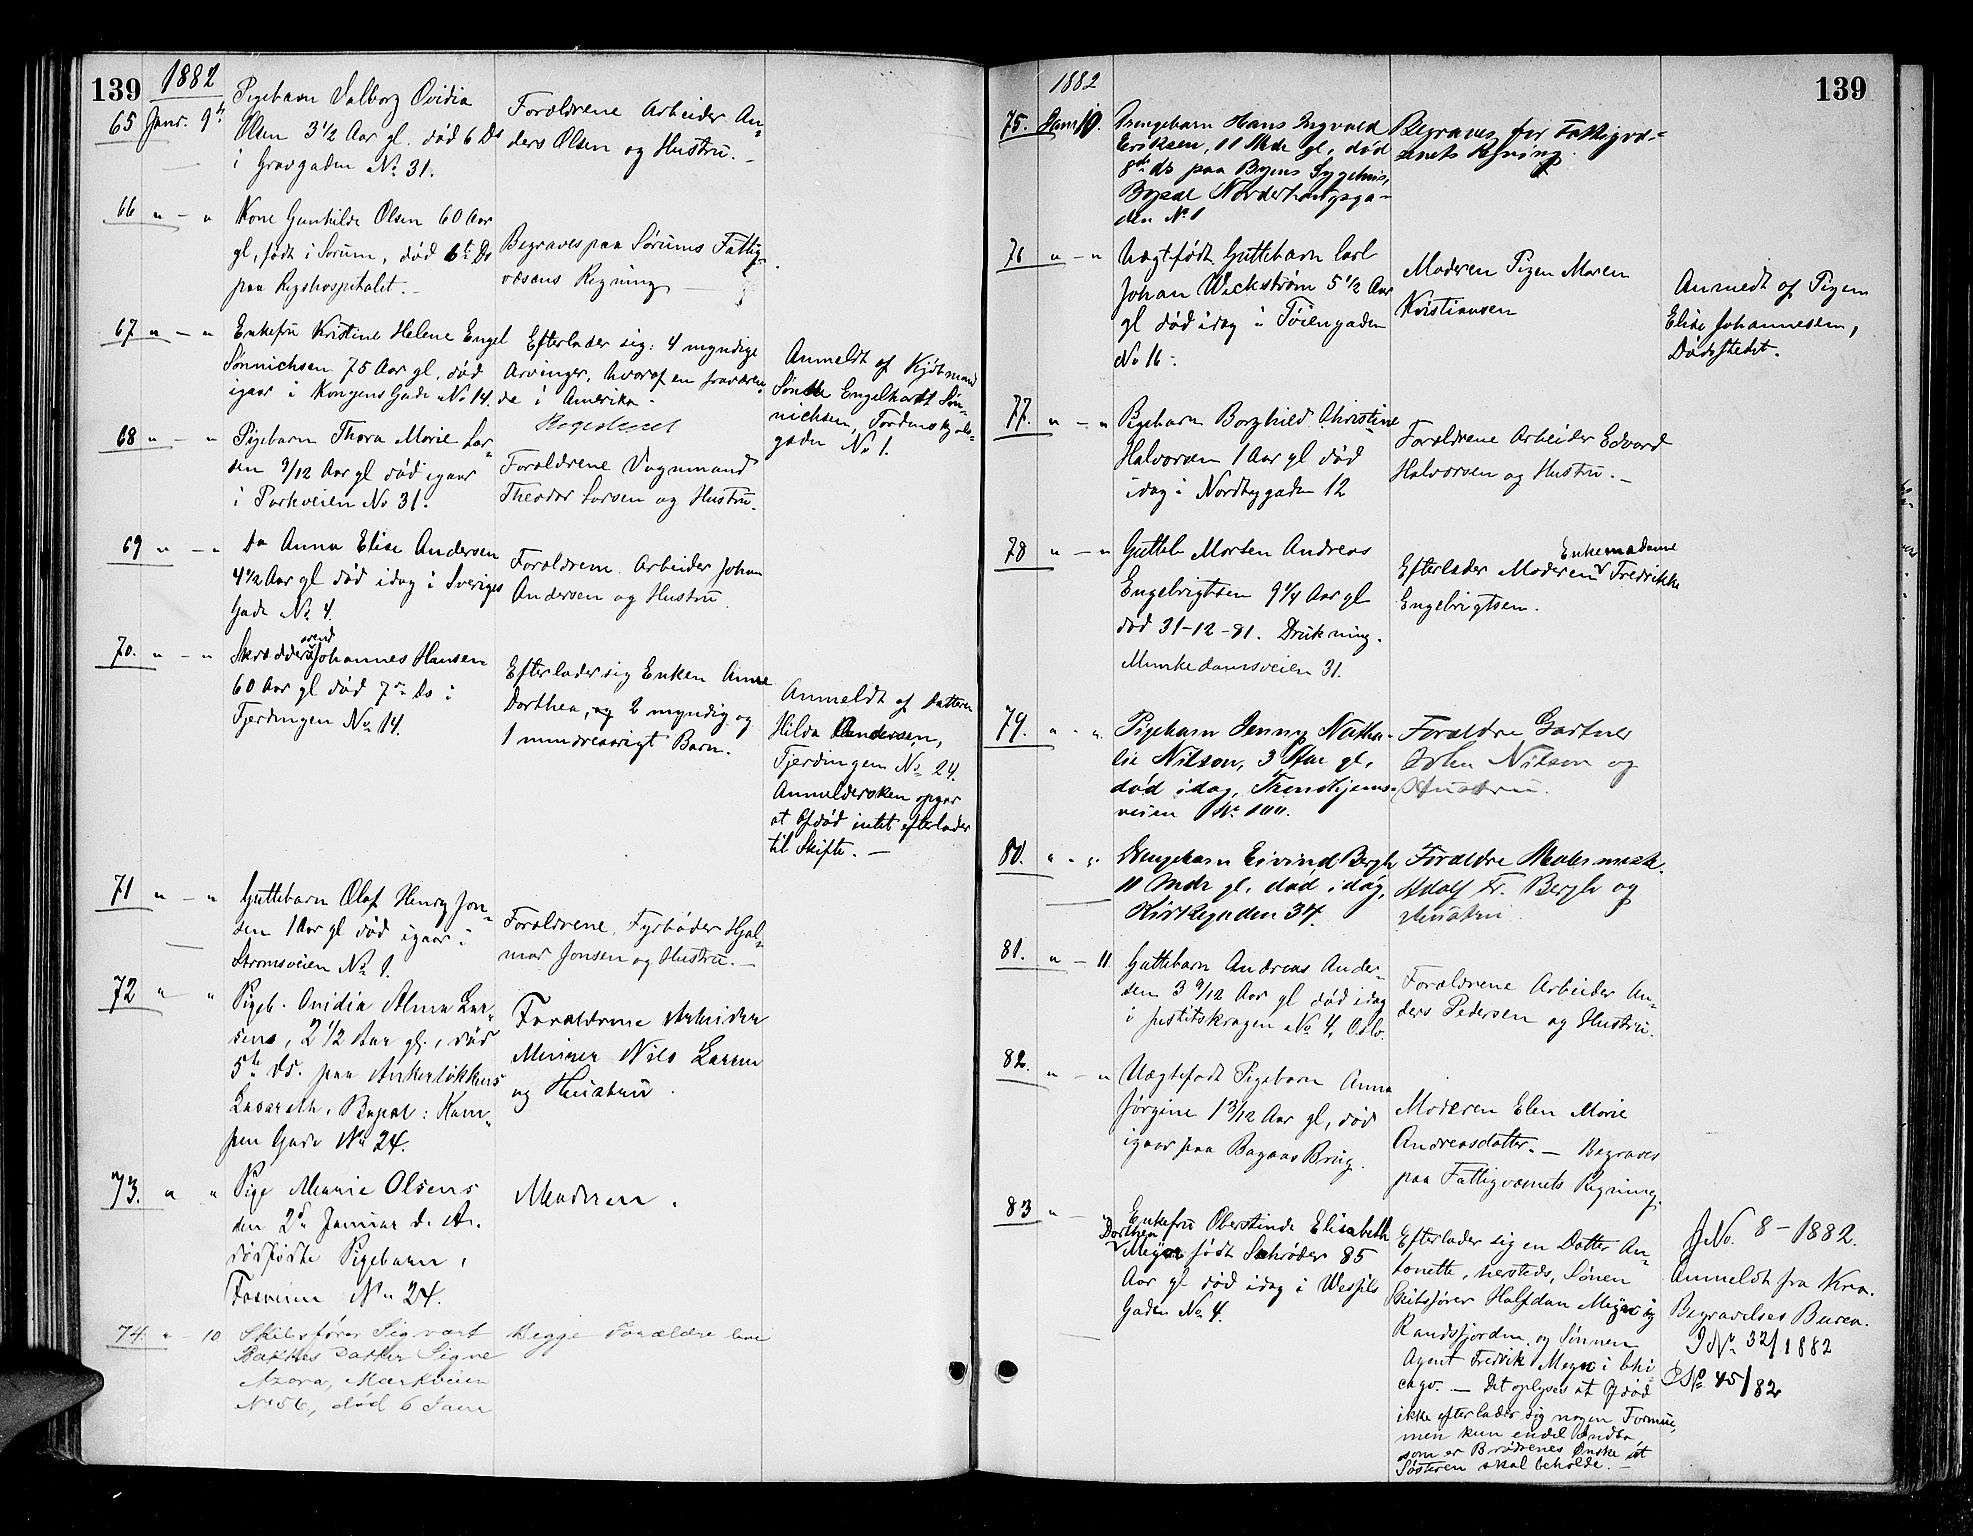 139
1882
65 Janr. 9de
Pigebarn Valborg Ovidia
Olsen 3 1/2 Aar gl. død 6 Ds
i Gravgaden No 31.
Forældrene Arbeider An-
ders Olsen og Hustru. -
66 " - "
Kone Gunhilde Olsen 60 Aar
gl, født i Sørum, død 6te Ds
paa Rigshospitalet. -
Begraves paa Sørums Fattig-
væsens Regning
67 " - "
Enkefru Kristine Helene Engel
Sønnichsen 75 Aar gl, død
igaar i Kongens Gade No 14.
Efterlader sig: 4 myndige
Arvinger, hvoraf en fraværen-
de i Amerika -
Anmeldt af Kjøbmand
Engelhardt Søn-
nichsen, Tordenskjolds-
gaden No 1.
68 " - "
Pigebarn Thora Marie Lar-
sen 9/12 Aar gl død igaar
i Parkveien No 31.
Forældrene Vognmand
Theodor Larsen og Hustru.
69 " - "
Do Anna Elise Andersen
4 1/2 Aar gl død idag i Sveriges
Gade No 4.
Forældrene Arbeider Johan
Andersen og Hustru.
70. " - "
Skræddersvend Johannes Hansen
60 Aar gl død 7de Ds i
Fjerdingen No 14.
Efterlader sig Enken Anne
Dorthea, og 2 myndig og
1 mindreaarigt Barn.
Anmeldt af Datteren
Hilda Andersen,
Fjerdingen No 24.
Anmeldersken opgav
at Afdød intet efterlader
til Skifte. -
71 " - "
Guttebarn Olaf Henry Jon-
sen 1 Aar gl død igaar i
Strømsveien No 9.
Forældrene Fyrbøder Hjal-
mar Jonsen og Hustru. -
72 " "
Pigeb. Ovidia Alma Lar-
sens, 2 1/2 Aar gl., død
5te ds. paa Ankerløkkens
Lazareth, Bopæl: Kam-
pen Gade No 24.
Forældrene Arbeider
Minerer Nils Larsen
og Hustru.
73. " "
Pige Marie Olsens
den 2den Januar d. A.
dødfødte Pigebarn,
Fosveien No 24.
Moderen.
74. " - 10
Skibsfører Sigvart
Bakkes datter Signe
Azora, Markveien
No 56, død 6 Janr
Begge Forældre leve
139
1882
75. Janr 10.
Drengebarn Hans Ingvald
Eriksen, 11 Mdr gl, død
8de ds paa Byens Sygehus,
Bopæl Norderhougsga-
den No 1
Begraves for Fattigvæ-
senets Regning.
76 " - "
Uægtefødt Guttebarn Carl
Johan Weckstrøm 5 1/2 Aar
gl død idag i Tøiengaden
No 16 -
Moderen Pigen Maren
Kristiansen
Anmeldt af Pigen
Elise Johannesen,
Dødsstedet.
77. " - "
Pigebarn Borghild Christine
Halvorsen 1 Aar gl død
idag i Nordbygaden 12
Forældrene Arbeider Edvard
Halvorsen og Hustru. -
78 " - "
Gutteb. Morten Andreas
Engebrigtsen 9 1/4 Aar gl
død 31-12-81. Drukning.
Munkedamsveien 31.
Efterlader Moderen Enkemadame Fredrikke
Engebrigtsen.
79. " - "
Pigebarn Jenny Natha-
lie Nilson, 3 Aar gl,
død idag, Throndhjems-
veien No 100.
Forældre Gartner
John Nilson og
Hustru.
80. " - "
Drengebarn Eivind Bergh
11 Mdr gl, død idag,
Kirkegaden 34.
Forældre Malermest.
Adolf Fr. Bergh og
Hustru
81. " - 11
Guttebarn Andreas Ander-
sen 3 9/12 Aar gl død idag
i Justitskragen No 4, Oslo.
Forældrene Arbeider An-
ders Pedersen og Hustru.
82. " - "
Uægtefødt Pigebarn Anna
Jørgine 1 3/12 Aar gl, død
igaar paa Bagaas Brug.
Moderen Elen Marie
Andreasdatter. - Begraves
paa Fattigvæsenets Regning.
83 " - "
Enkefru Oberstinde Elisabeth
Dorthea Meyer født Schrøder 85
Aar gl død idag i Wessels
Gaden No 4.
Efterlader sig en Datter An-
tonette, hersteds, Sønen
Skibsfører Halfdan Meyer og
Randsfjorden og Sønnen
Agent Fredrik Meyer i Chi-
cago. - Det oplyses at Afdød
ikke efterlader sig nogen Formue,
men kun endel Indbo
som er Brødrenes Ønske at
Søsteren skal beholde. -
JNo. 8 - 1882.
Anmeldt fra Kra.
Begravelses Bureau.
JNo 32/1882
45/82